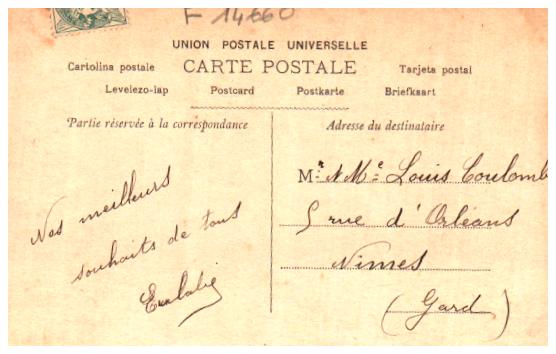 F 14660
UNION POSTALE UNIVERSELLE
Cartolina postale CARTE POSTALE Tarjeta postal
Levelezo-lap Postcard Postkarte Briefkaart
Partie réservée à la correspondance
Nos meilleurs
souhaits de tous
Eulalie
Adresse du destinataire
Mr & Me Louis Coulomb
5 rue d'Orléans
Nimes
(Gard)